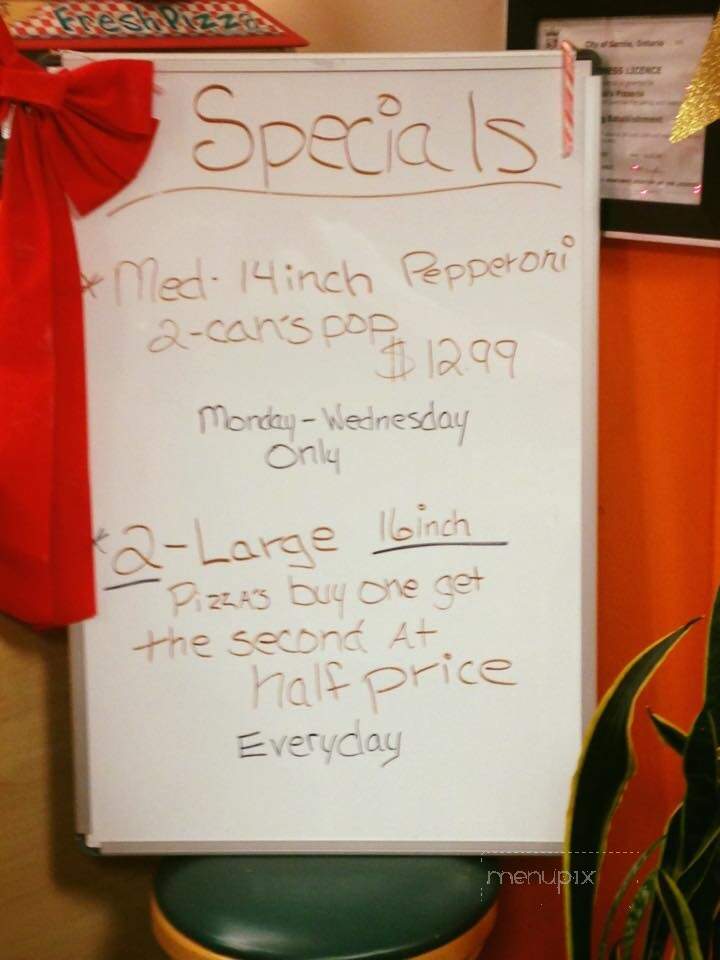 Fresh Pizza
City of Sarnia, Ontario
LICENCE
Establishment
Specials
* Med. 14 inch Pepperoni
2-can's pop
$12.99
Monday-Wednesday
Only
* 2-Large 16inch
Pizza's buy one get
the second At
half price
Everyday
menupix